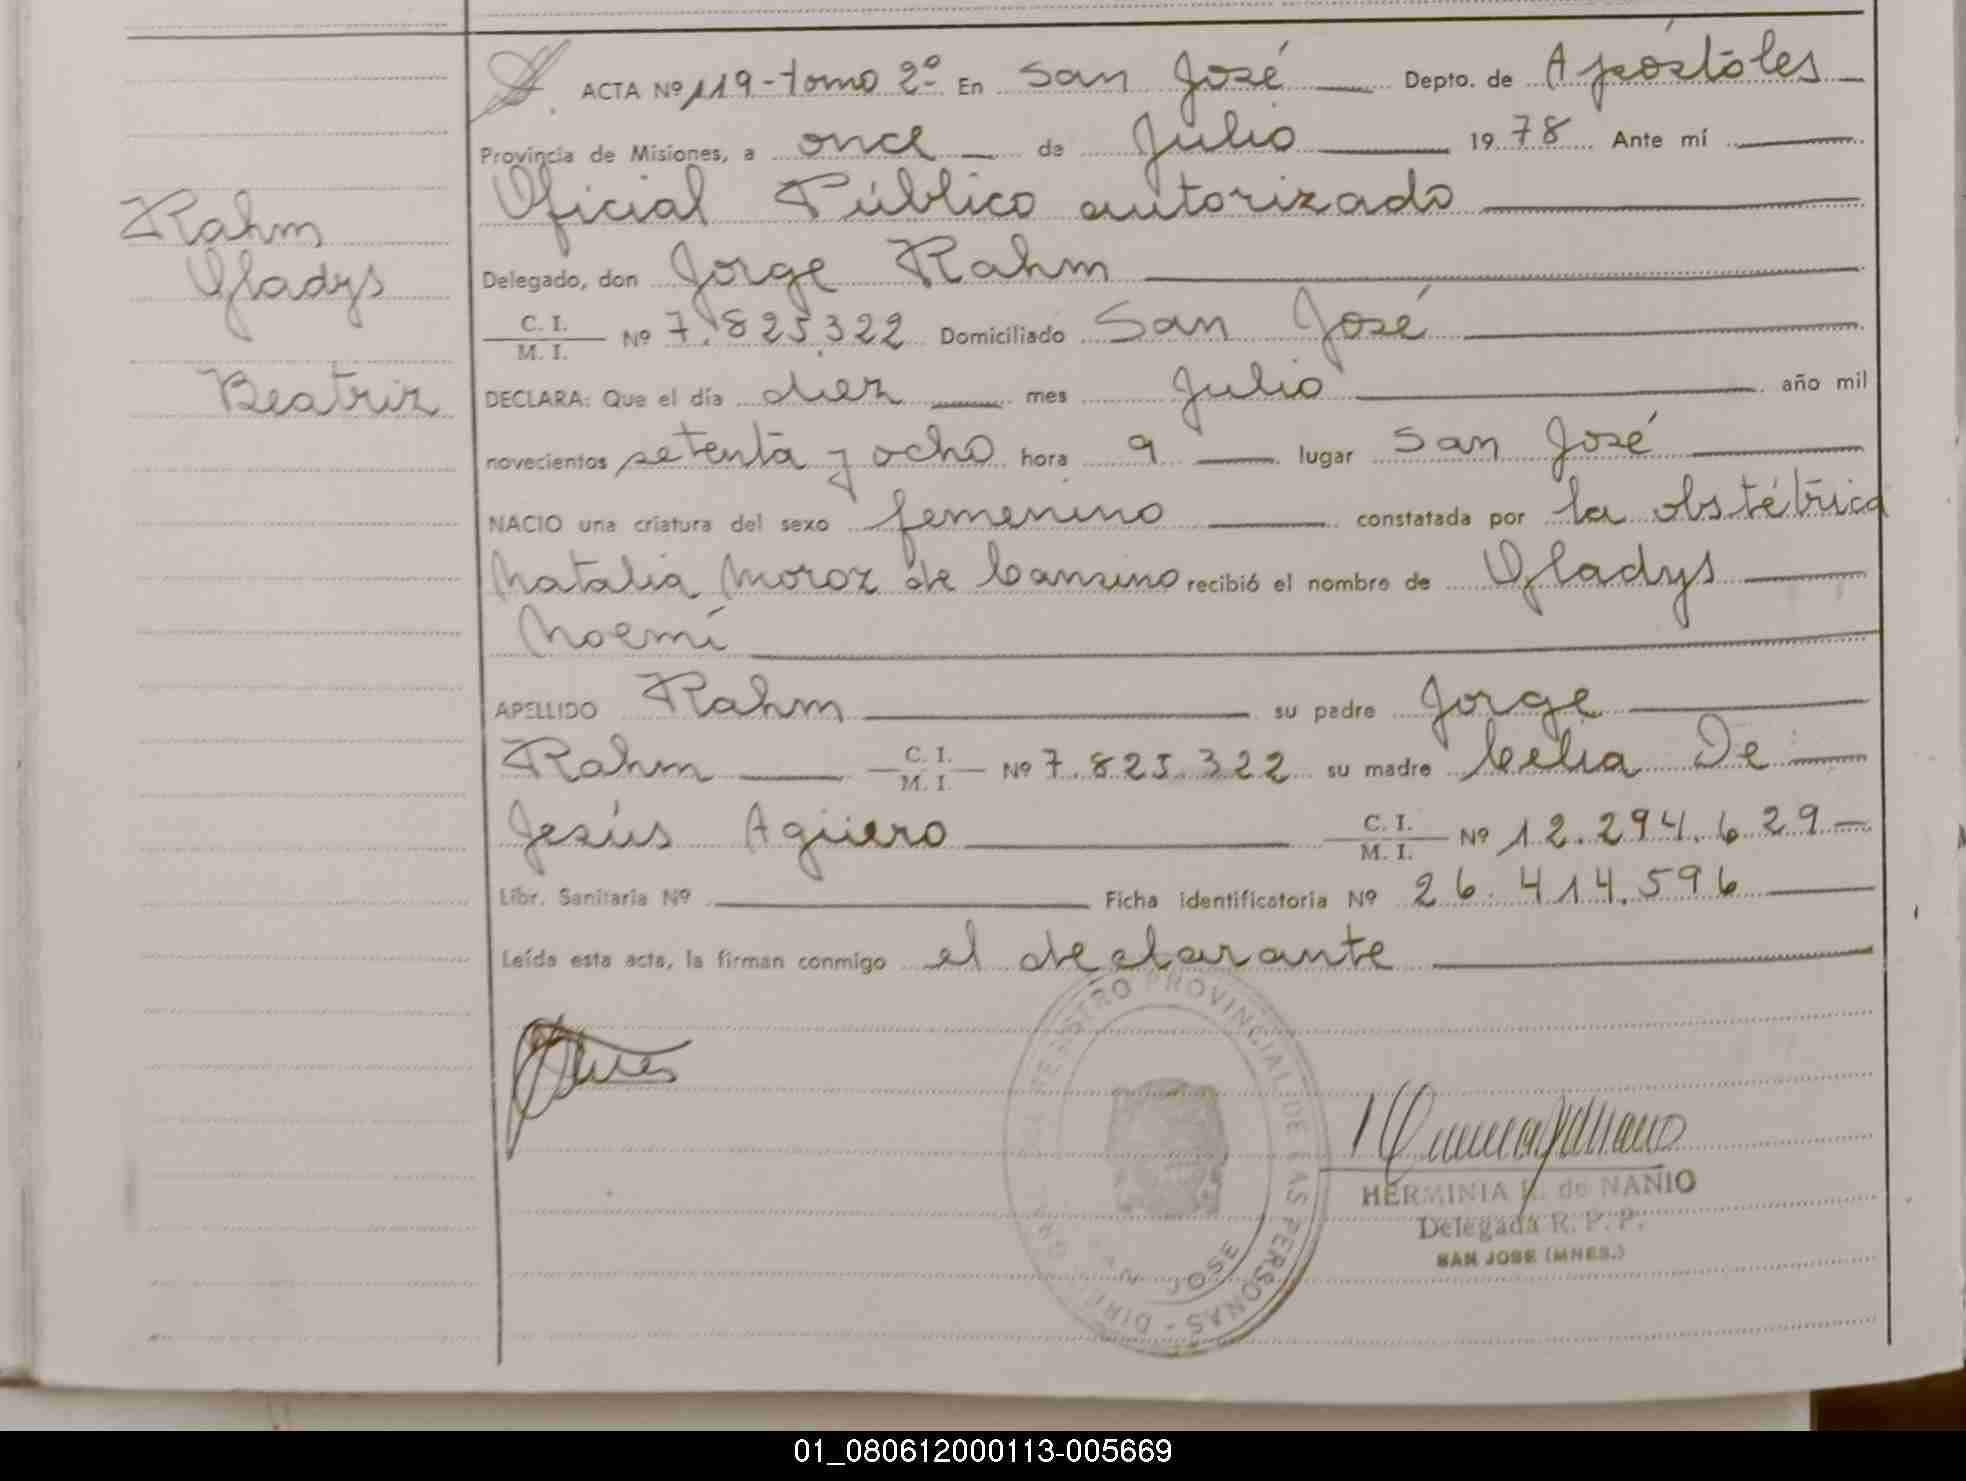 Rahm
Gladys
Beatriz
ACTA Nº 119-tomo 2º En San José Depto. de Apóstoles
Provincia de Misiones, a once de Julio 1978 Ante mí
Oficial Público autorizado
Delegado, don Jorge Rahm
C. I.
M. I. Nº 7.825.322 Domiciliado San José
DECLARA: Que el día diez mes Julio año mil
novecientos setenta y ocho hora 9 lugar San José
NACIO una criatura del sexo femenino constatada por la obstétrica
Natalia Moroz de Cansino recibió el nombre de Gladys
Noemí
APELLIDO Rahm su padre Jorge
Rahm C. I. M. I. Nº 7.825.322 su madre Celia De
Jesús Agüero C. I. M. I. Nº 12.294.629-
Libr. Sanitaria Nº Ficha identificatoria Nº 26.414.596
Leída esta acta, la firman conmigo el declarante
REGISTRO PROVINCIAL DE LAS PERSONAS
JOSE
HERMINIA de NAÑIO
Delegada R. P. P.
SAN JOSE (MNES.)
01_080612000113-005669